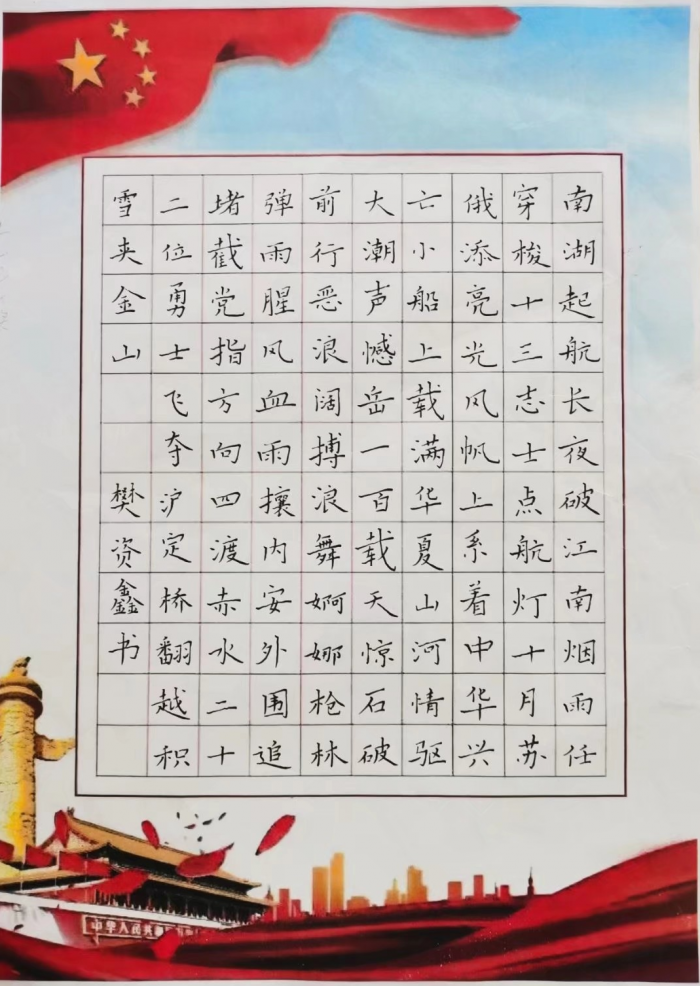 南湖起航长夜破江南烟雨任
穿梭十三志士点航灯十月苏
俄添亮光风帆上系着中华兴
亡小船上载满华夏山河情驱
大潮声憾岳一百载天惊石破
前行恶浪阔搏浪舞婀娜枪林
弹雨腥风血雨攘内安外围追
堵截党指方向四渡赤水二十
二位勇士飞夺沪定桥翻越积
雪夹金山 樊资鑫书
中华人民共